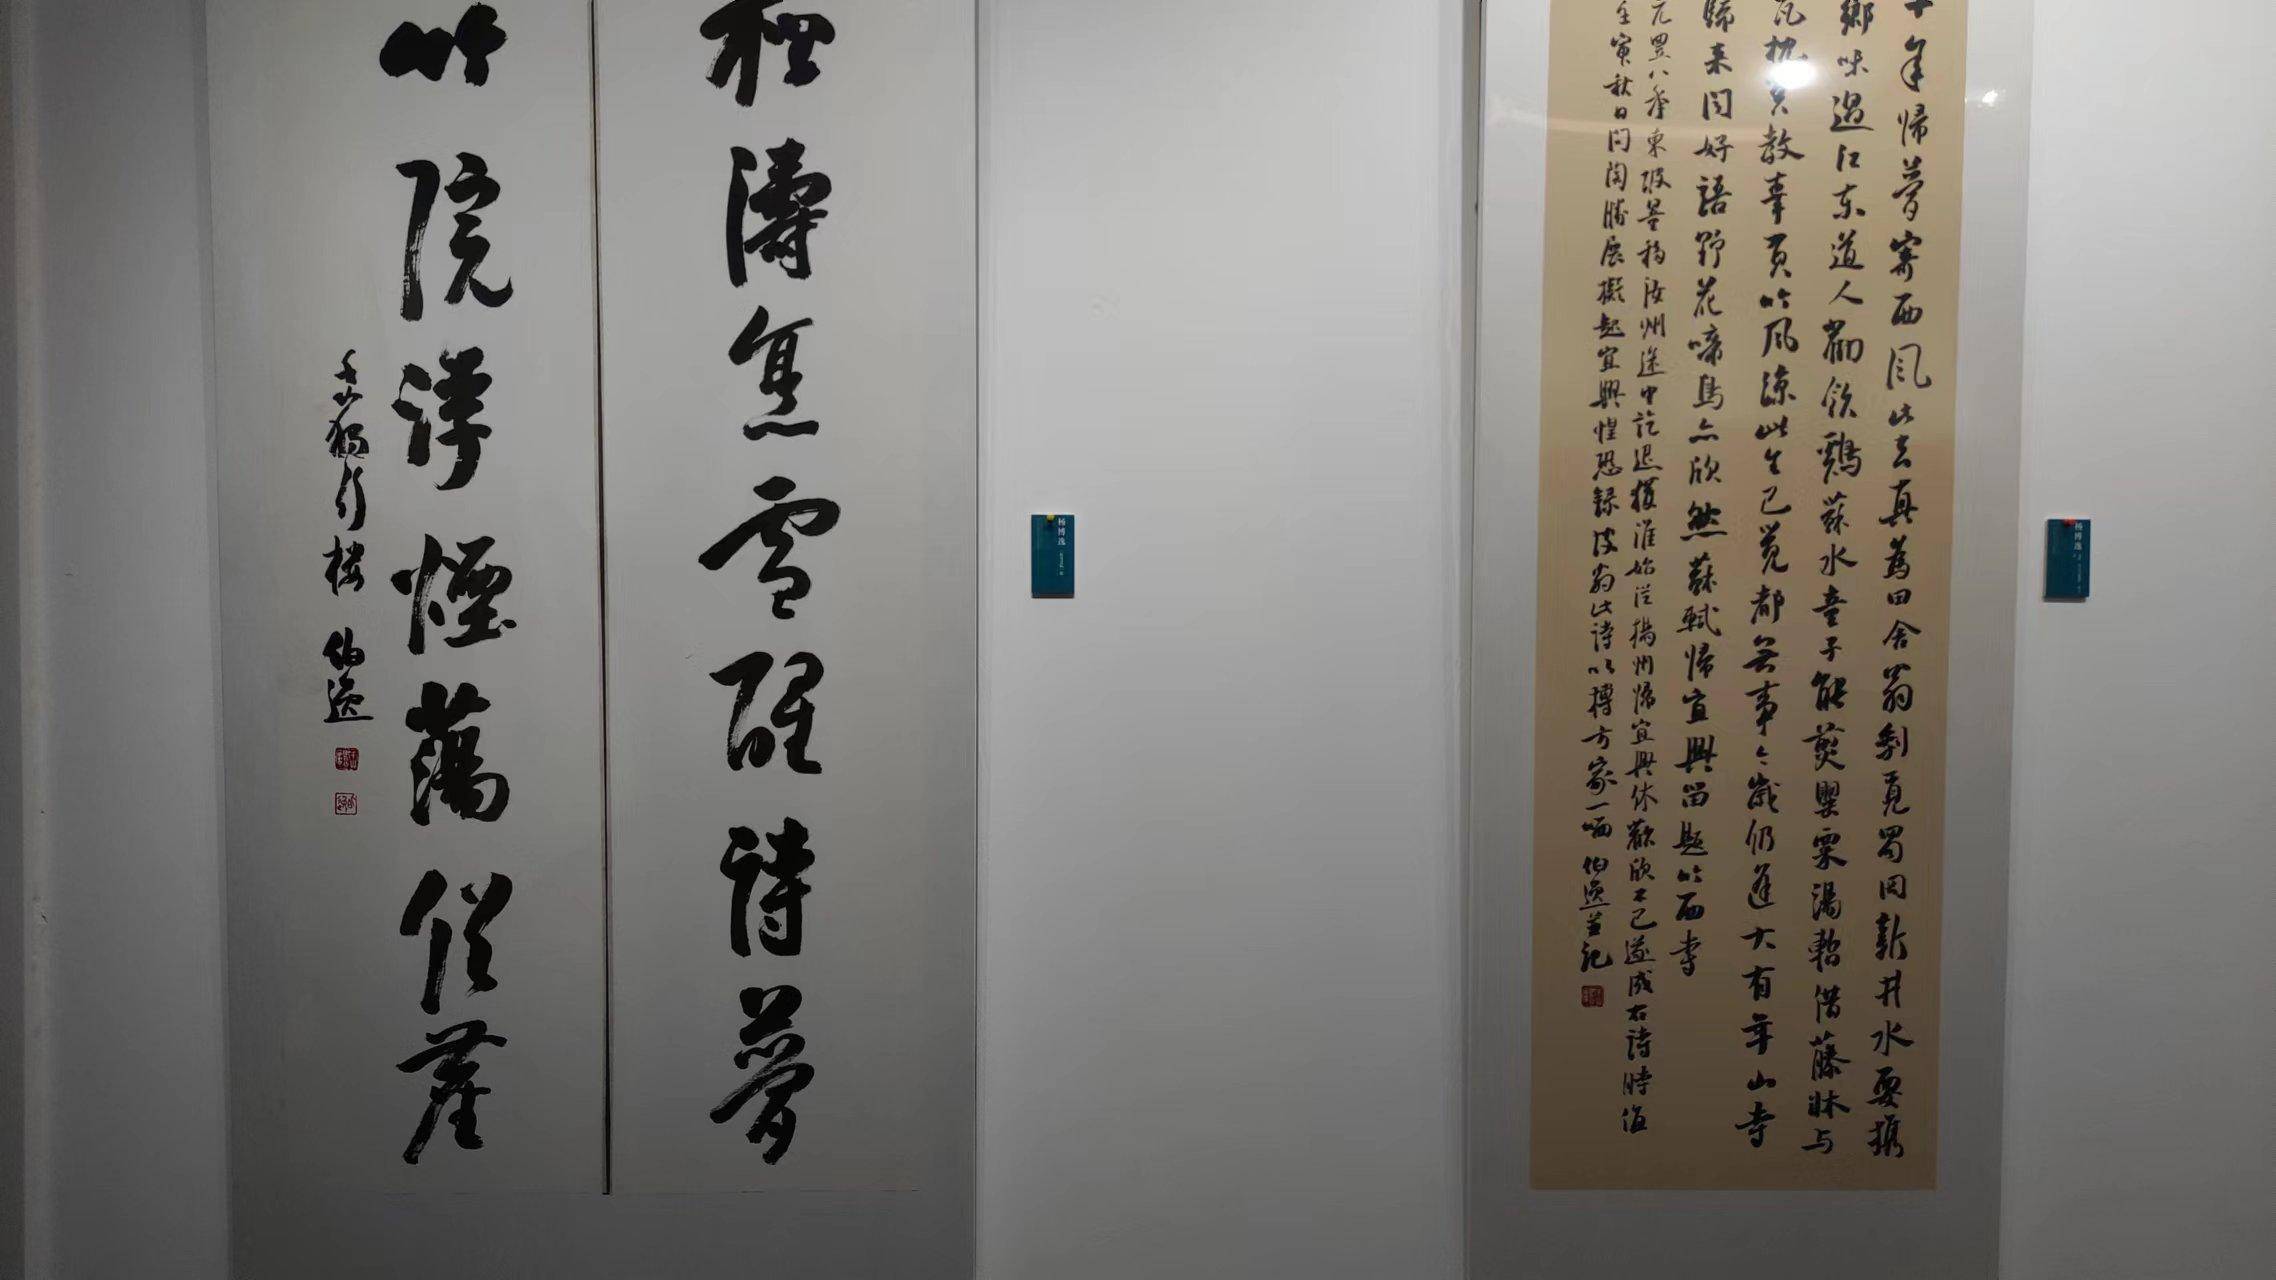 十年歸夢寄西風此去真為田舍翁剩覓蜀岡新井水要攜
鄉味過江東道人勸飲雞蘇水童子能煎罌粟湯暫借藤牀與
瓦枕莫教辜負竹風涼此生已覺都無事今歲仍逢大有年山寺
歸來聞好語野花啼鳥亦欣然蘇軾歸宜興留題竹西寺
元豐八年東坡量移汝州途中訖退獲准始從揚州歸宜興休歡欣不已遂成右詩時值
壬寅秋日問陶勝展擬赴宜興惶恐錄坡翁此詩以博方家一哂伯逸並記
松濤烹雪醒詩夢
竹院浮煙蕩俗塵
千山獨行樓 伯逸
杨博逸
杨博逸